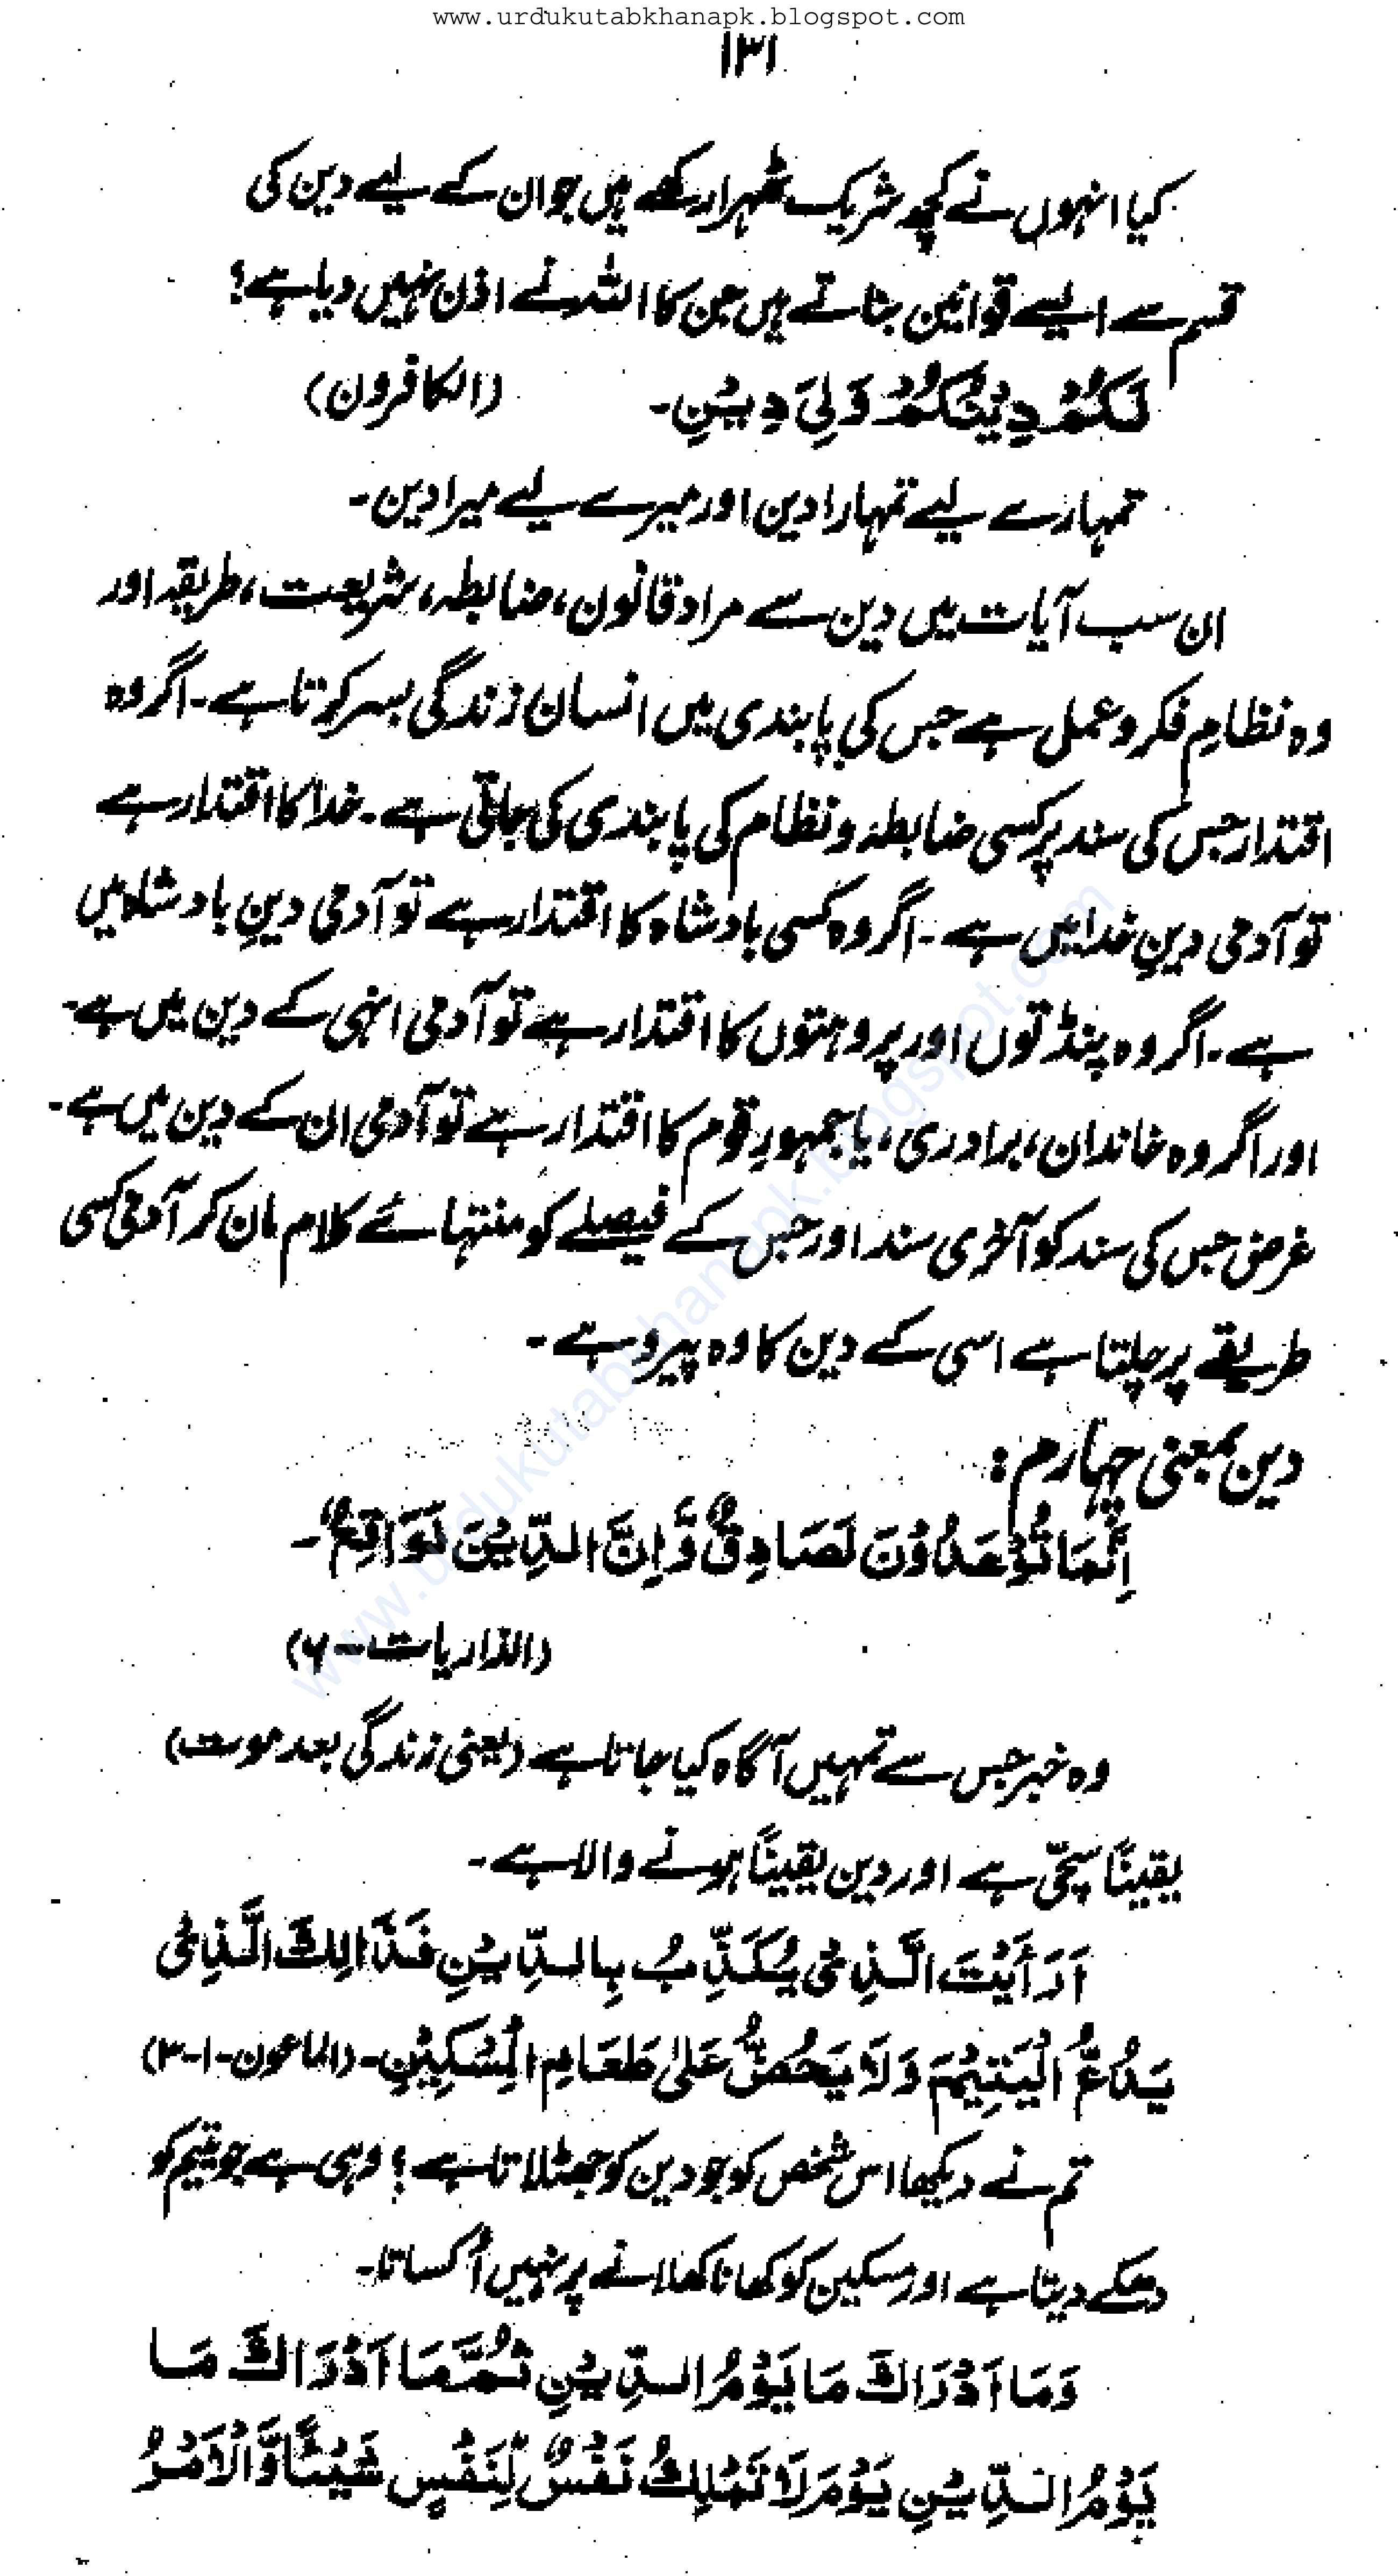 www.urdukutabkhanapk.blogspot.com
۱۳۱
کیا انہوں نے کچھ شریک ٹھہرا رکھے ہیں جو ان کے لیے دین کی
قسم سے ایسے قوانین بناتے ہیں جن کا اللہ نے اذن نہیں دیا ہے؟
لَكُمْ دِيْنُكُمْ وَلِیَ دِيْنِ۔ (الکافرون)
تمہارے لیے تمہارا دین اور میرے لیے میرا دین۔
ان سب آیات میں دین سے مراد قانون، ضابطہ، شریعت، طریقہ اور
وہ نظامِ فکر و عمل ہے جس کی پابندی میں انسان زندگی بسر کرتا ہے۔ اگر وہ
اقتدار جس کی سند پر کسی ضابطہ و نظام کی پابندی کی جاتی ہے۔ خدا کا اقتدار ہے
تو آدمی دینِ خدا میں ہے۔ اگر وہ کسی بادشاہ کا اقتدار ہے تو آدمی دینِ بادشاہ میں
ہے۔ اگر وہ پنڈتوں اور پروہتوں کا اقتدار ہے تو آدمی انہی کے دین میں ہے۔
اور اگر وہ خاندان، برادری، یا جمہورِ قوم کا اقتدار ہے تو آدمی ان کے دین میں ہے۔
غرض جس کی سند کو آخری سند اور جس کے فیصلے کو منتہائے کلام مان کر آدمی کسی
طریقے پر چلتا ہے اسی کے دین کا وہ پیرو ہے۔
دین بمعنی چہارم:
اِنَّمَا تُوْعَدُوْنَ لَصَادِقٌ وَّاِنَّ الدِّيْنَ لَوَاقِعٌ۔
(الذاریات-۶)
وہ خبر جس سے تمہیں آگاہ کیا جاتا ہے (یعنی زندگی بعد موت)
یقیناً سچّی ہے اور دین یقیناً ہونے والا ہے۔
اَرَأَيْتَ الَّذِیْ يُكَذِّبُ بِالدِّيْنِ فَذَالِكَ الَّذِیْ
يَدُعُّ الْيَتِيْمَ وَلَا يَحُضُّ عَلٰى طَعَامِ الْمِسْكِيْنِ۔ (الماعون-۱-۳)
تم نے دیکھا اس شخص کو جو دین کو جھٹلاتا ہے؟ وہی ہے جو یتیم کو
دھکے دیتا ہے اور مسکین کو کھانا کھلانے پر نہیں اُکساتا۔
وَمَا اَدْرَاكَ مَا يَوْمُ الدِّيْنِ ثُمَّ مَا اَدْرَاكَ مَا
يَوْمُ الدِّيْنِ يَوْمَ لَا تَمْلِكُ نَفْسٌ لِّنَفْسٍ شَيْئًا وَّالْاَمْرُ
www.urdukutabkhanapk.blogspot.com